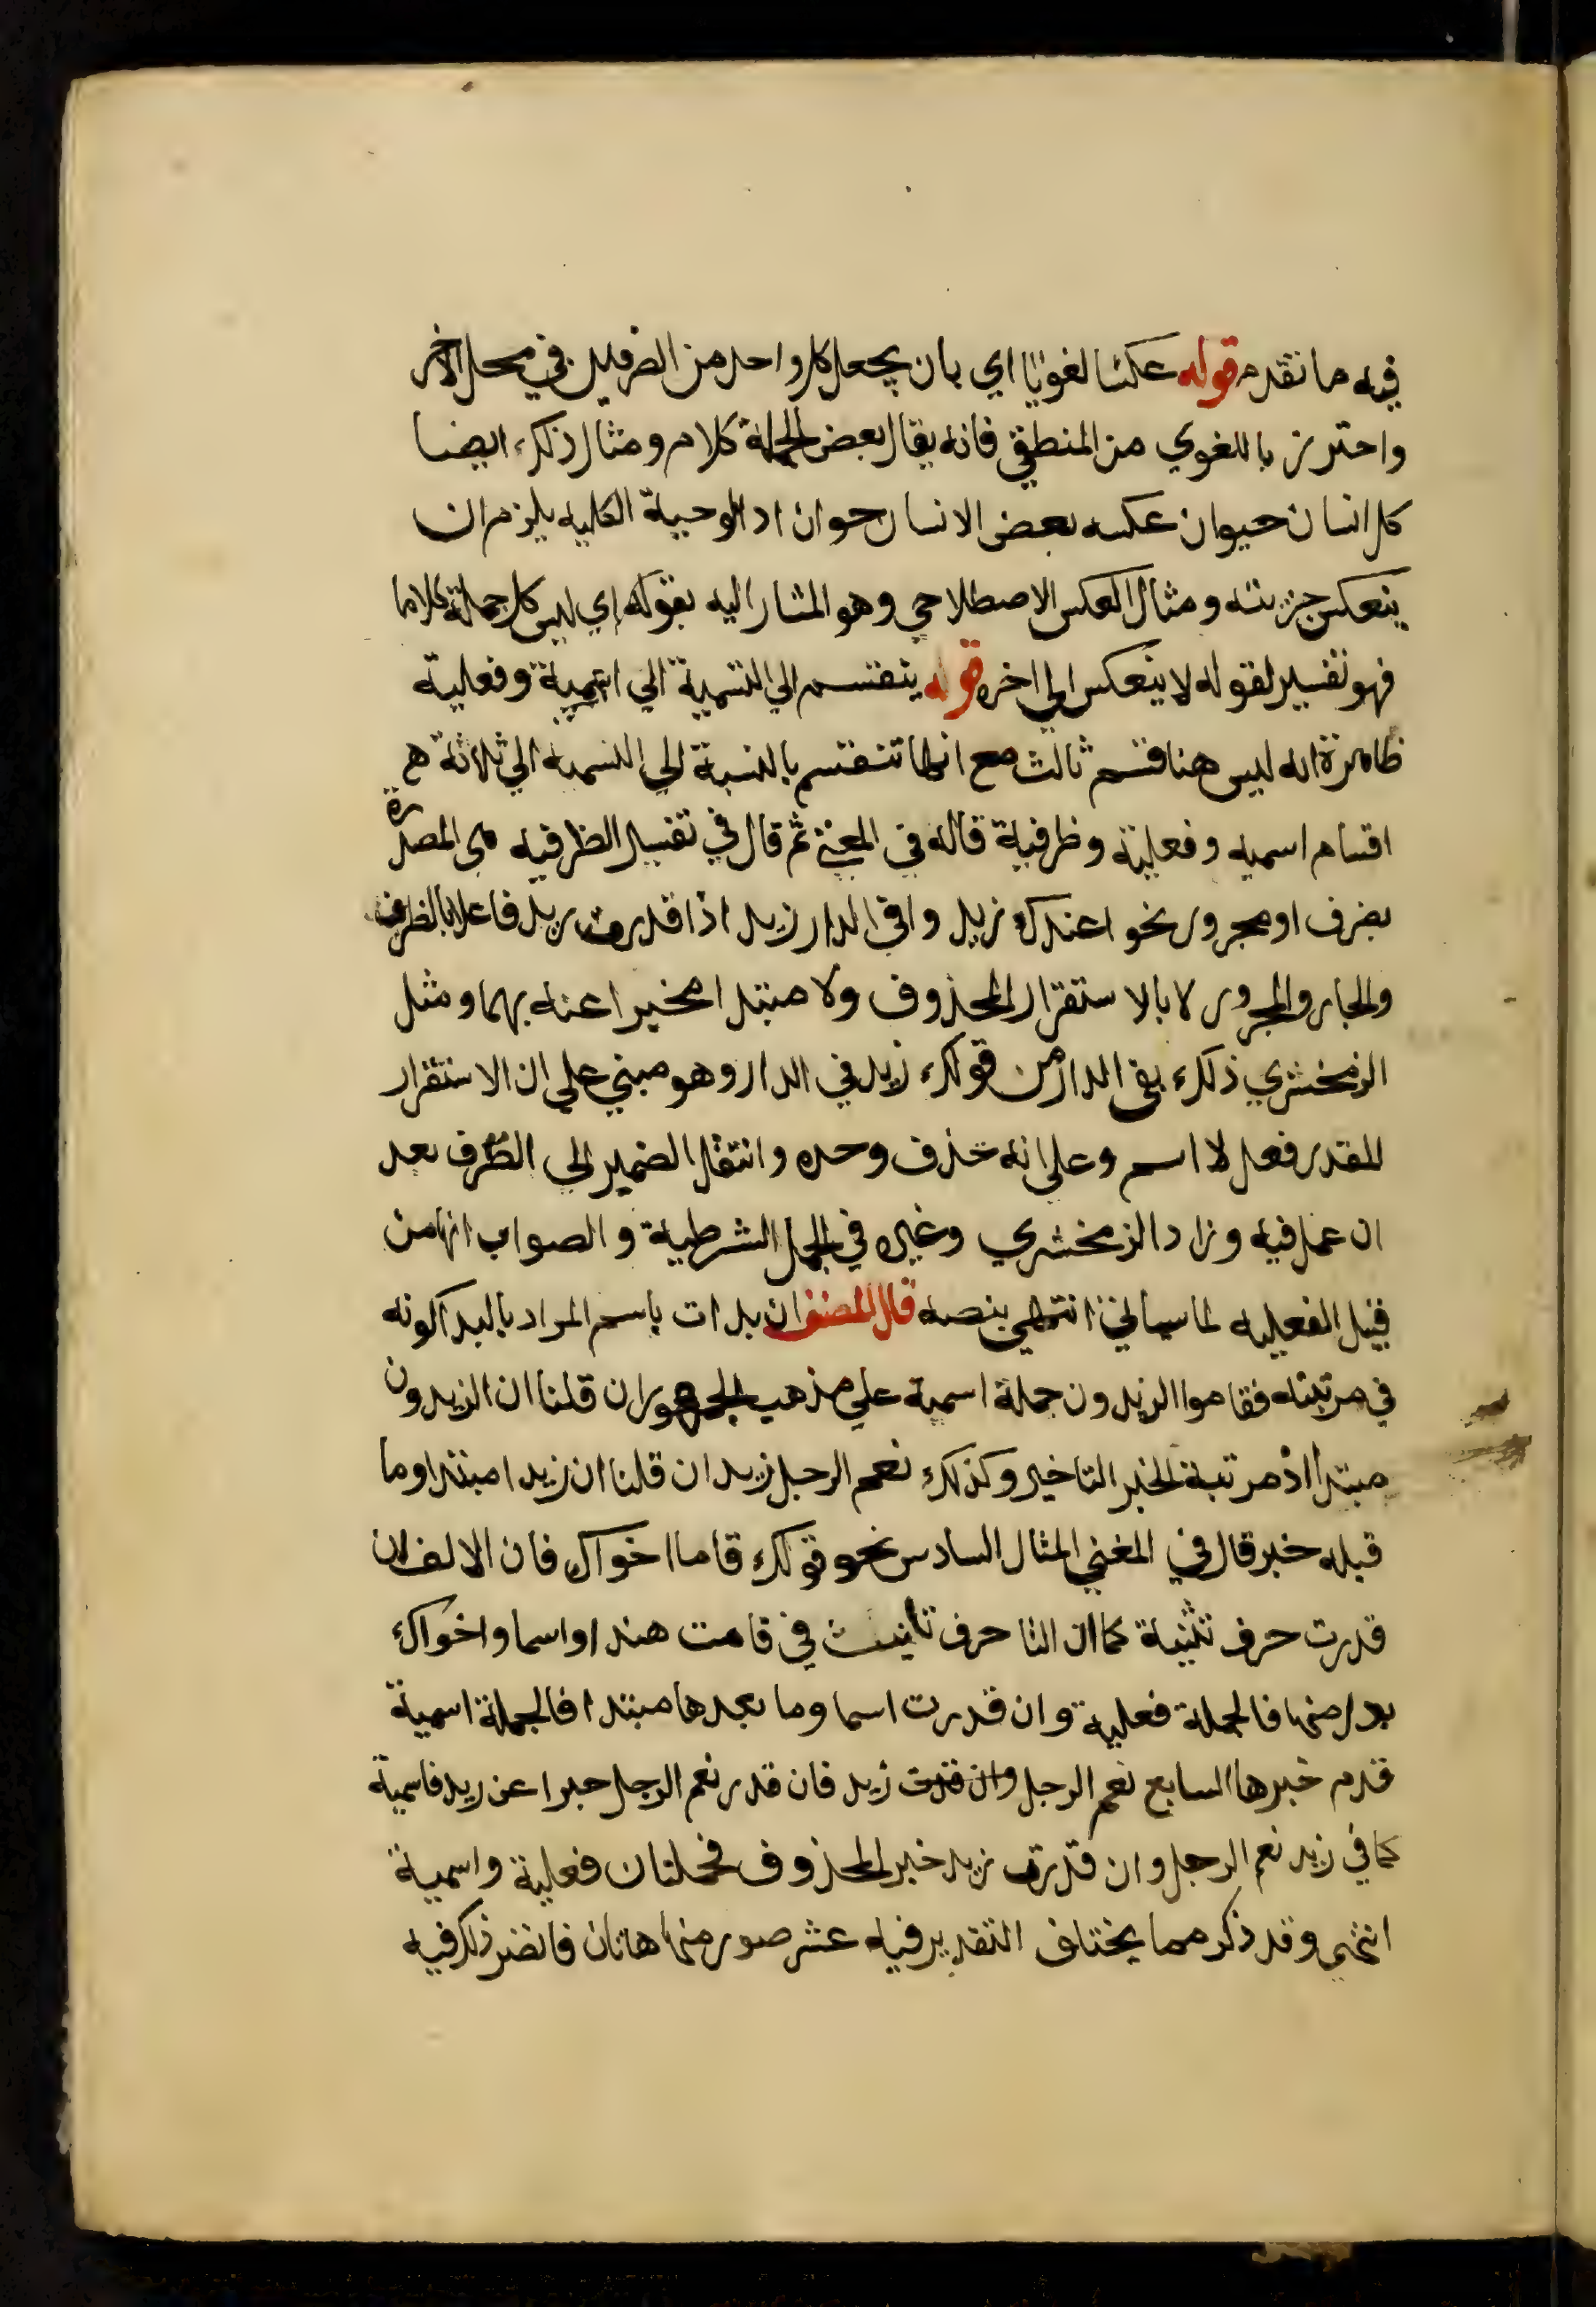 فيه ما تقدم قوله عكسا لغويا اي بان يجعل كل واحد من الطرفين في محل الاخر
واحترز باللغوي من المنطقي فانه يقال بعض الجملة كلام ومثال ذلك ايضا
كل انسان حيوان عكسه بعض الانسان حيوان اد الموجبة الكليه يلزم ان
ينعكس جزيته ومثال العكس الاصطلاحي وهو المشار اليه بقوله اي ليس كل جملة كلاما
فهو تفسير لقوله لا ينعكس الي اخره قوله ينقسم الي التسمية الي اسمية وفعلية
ظاهرة انه ليس هنا قسم ثالث مع انها تنقسم بالنسبة الي التسمية الي ثلاثة
اقسام اسميه وفعلية وظرفية قاله في المغني ثم قال في تفسير الظرفيه هي المصدرة
بضرف او مجرور نحو اعندك زيد وافي الدار زيد اذا قدرت زيد فاعلا بالظرف
والجار والمجرور لا بالاستقرار المحذوف ولا مبتدا مخبرا عنه بهما ومثل
الزمخشري ذلك بفي الدار من قولك زيد في الدار وهو مبني علي ان الاستقرار
المقدر فعل لا اسم وعلي انه حذف وحده وانتقل الضمير الي الظرف بعد
ان عمل فيه وزاد الزمخشري وغيره في الجمل الشرطية والصواب انها من
قبيل الفعليه لما سياتي انتهي بنصه قال المصنف ان بدات باسم المراد بالبدا كونه
في مرتبته فقاموا الزيدون جملة اسمية علي مذهب الجمهور ان قلنا ان الزيدون
مبتدا اذ مرتبة الخبر التاخير وكذلك نعم الرجل زيد ان قلنا ان زيد امبتدا وما
قبله خبر قال في المغني المثال السادس نحو قولك قاما اخواك فان الالف ان
قدرت حرف تثنية كما ان التا حرف تانيث في قامت هند او اسما واخواك
بدل منها فالجملة فعلية وان قدرت اسما وما بعدها مبتدا فالجملة اسمية
قدم خبرها السابع نعم الرجل وان قدرت زيد فان قدر نعم الرجل خبرا عن زيد فاسمية
كما في زيد نعم الرجل وان قدرت زيد خبر المحذوف فجملتان فعلية واسمية
انتهى وقد ذكر مما يختلف التقدير فيه عشر صور منها هاتان فانضر ذلك فيه